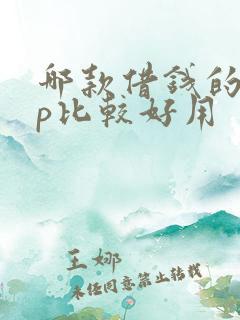 哪款借钱的
p比较好用
王娜
未经同意禁止转载